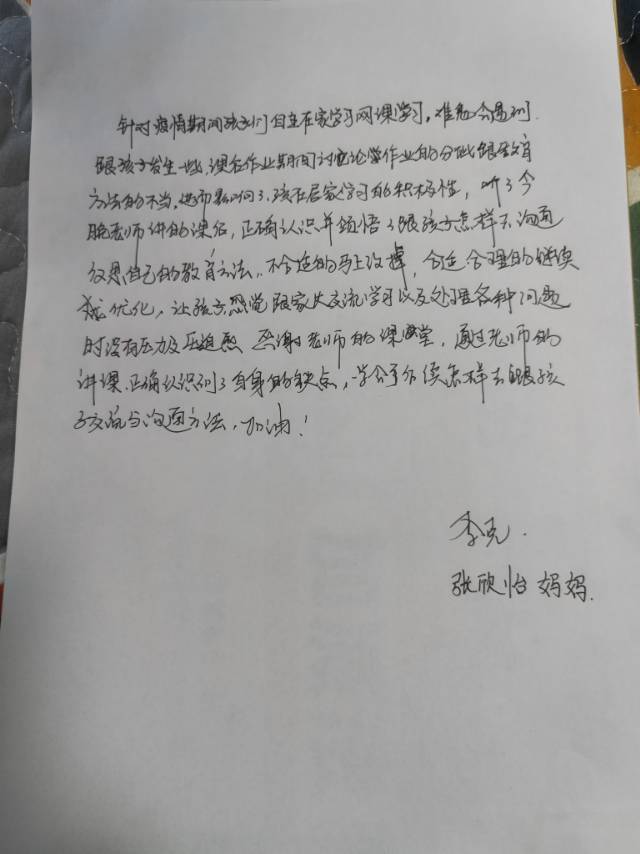 针对疫情期间孩子们自主在家学习网课学习，难免会遇到
跟孩子发生一些，课后作业期间讨论学作业的分歧跟教育
方法的不当，进而影响了孩在居家学习的积极性，听了今
晚老师讲的课后，正确认识并领悟了跟孩子怎样去沟通
反思自己的教育方法，不合适的马上改掉，合适合理的继续
优化，让孩子感觉跟家长交流学习以及处理各种问题
时没有压力及压迫感 感谢老师的课堂，通过老师的
讲课.正确认识到了自身的缺点，学会了后续怎样去跟孩
子交流与沟通方法，加油！
李克.
张欣怡妈妈.